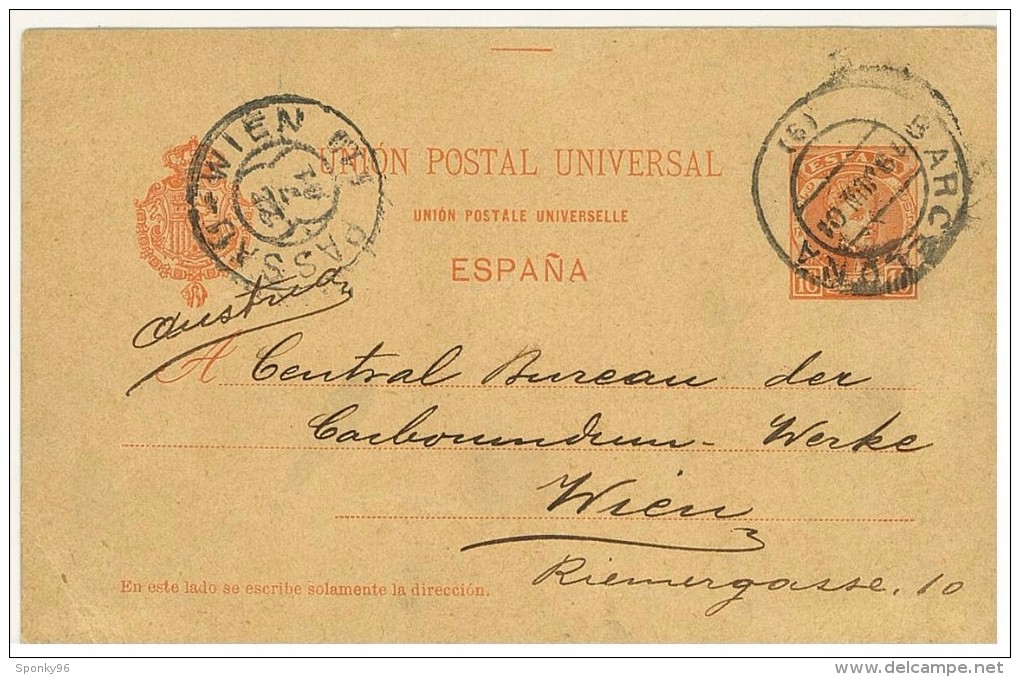 UNIÓN POSTAL UNIVERSAL
UNIÓN POSTALE UNIVERSELLE
ESPAÑA
WIEN
PASSAU
BARCELONA
(6)
29 JUN 01
ESPAÑA
10 10
Austria
A Central Bureau der
Carborundum-Werke
Wien
Riemergasse, 10
En este lado se escribe solamente la dirección.
Sponky96
www.delcampe.net